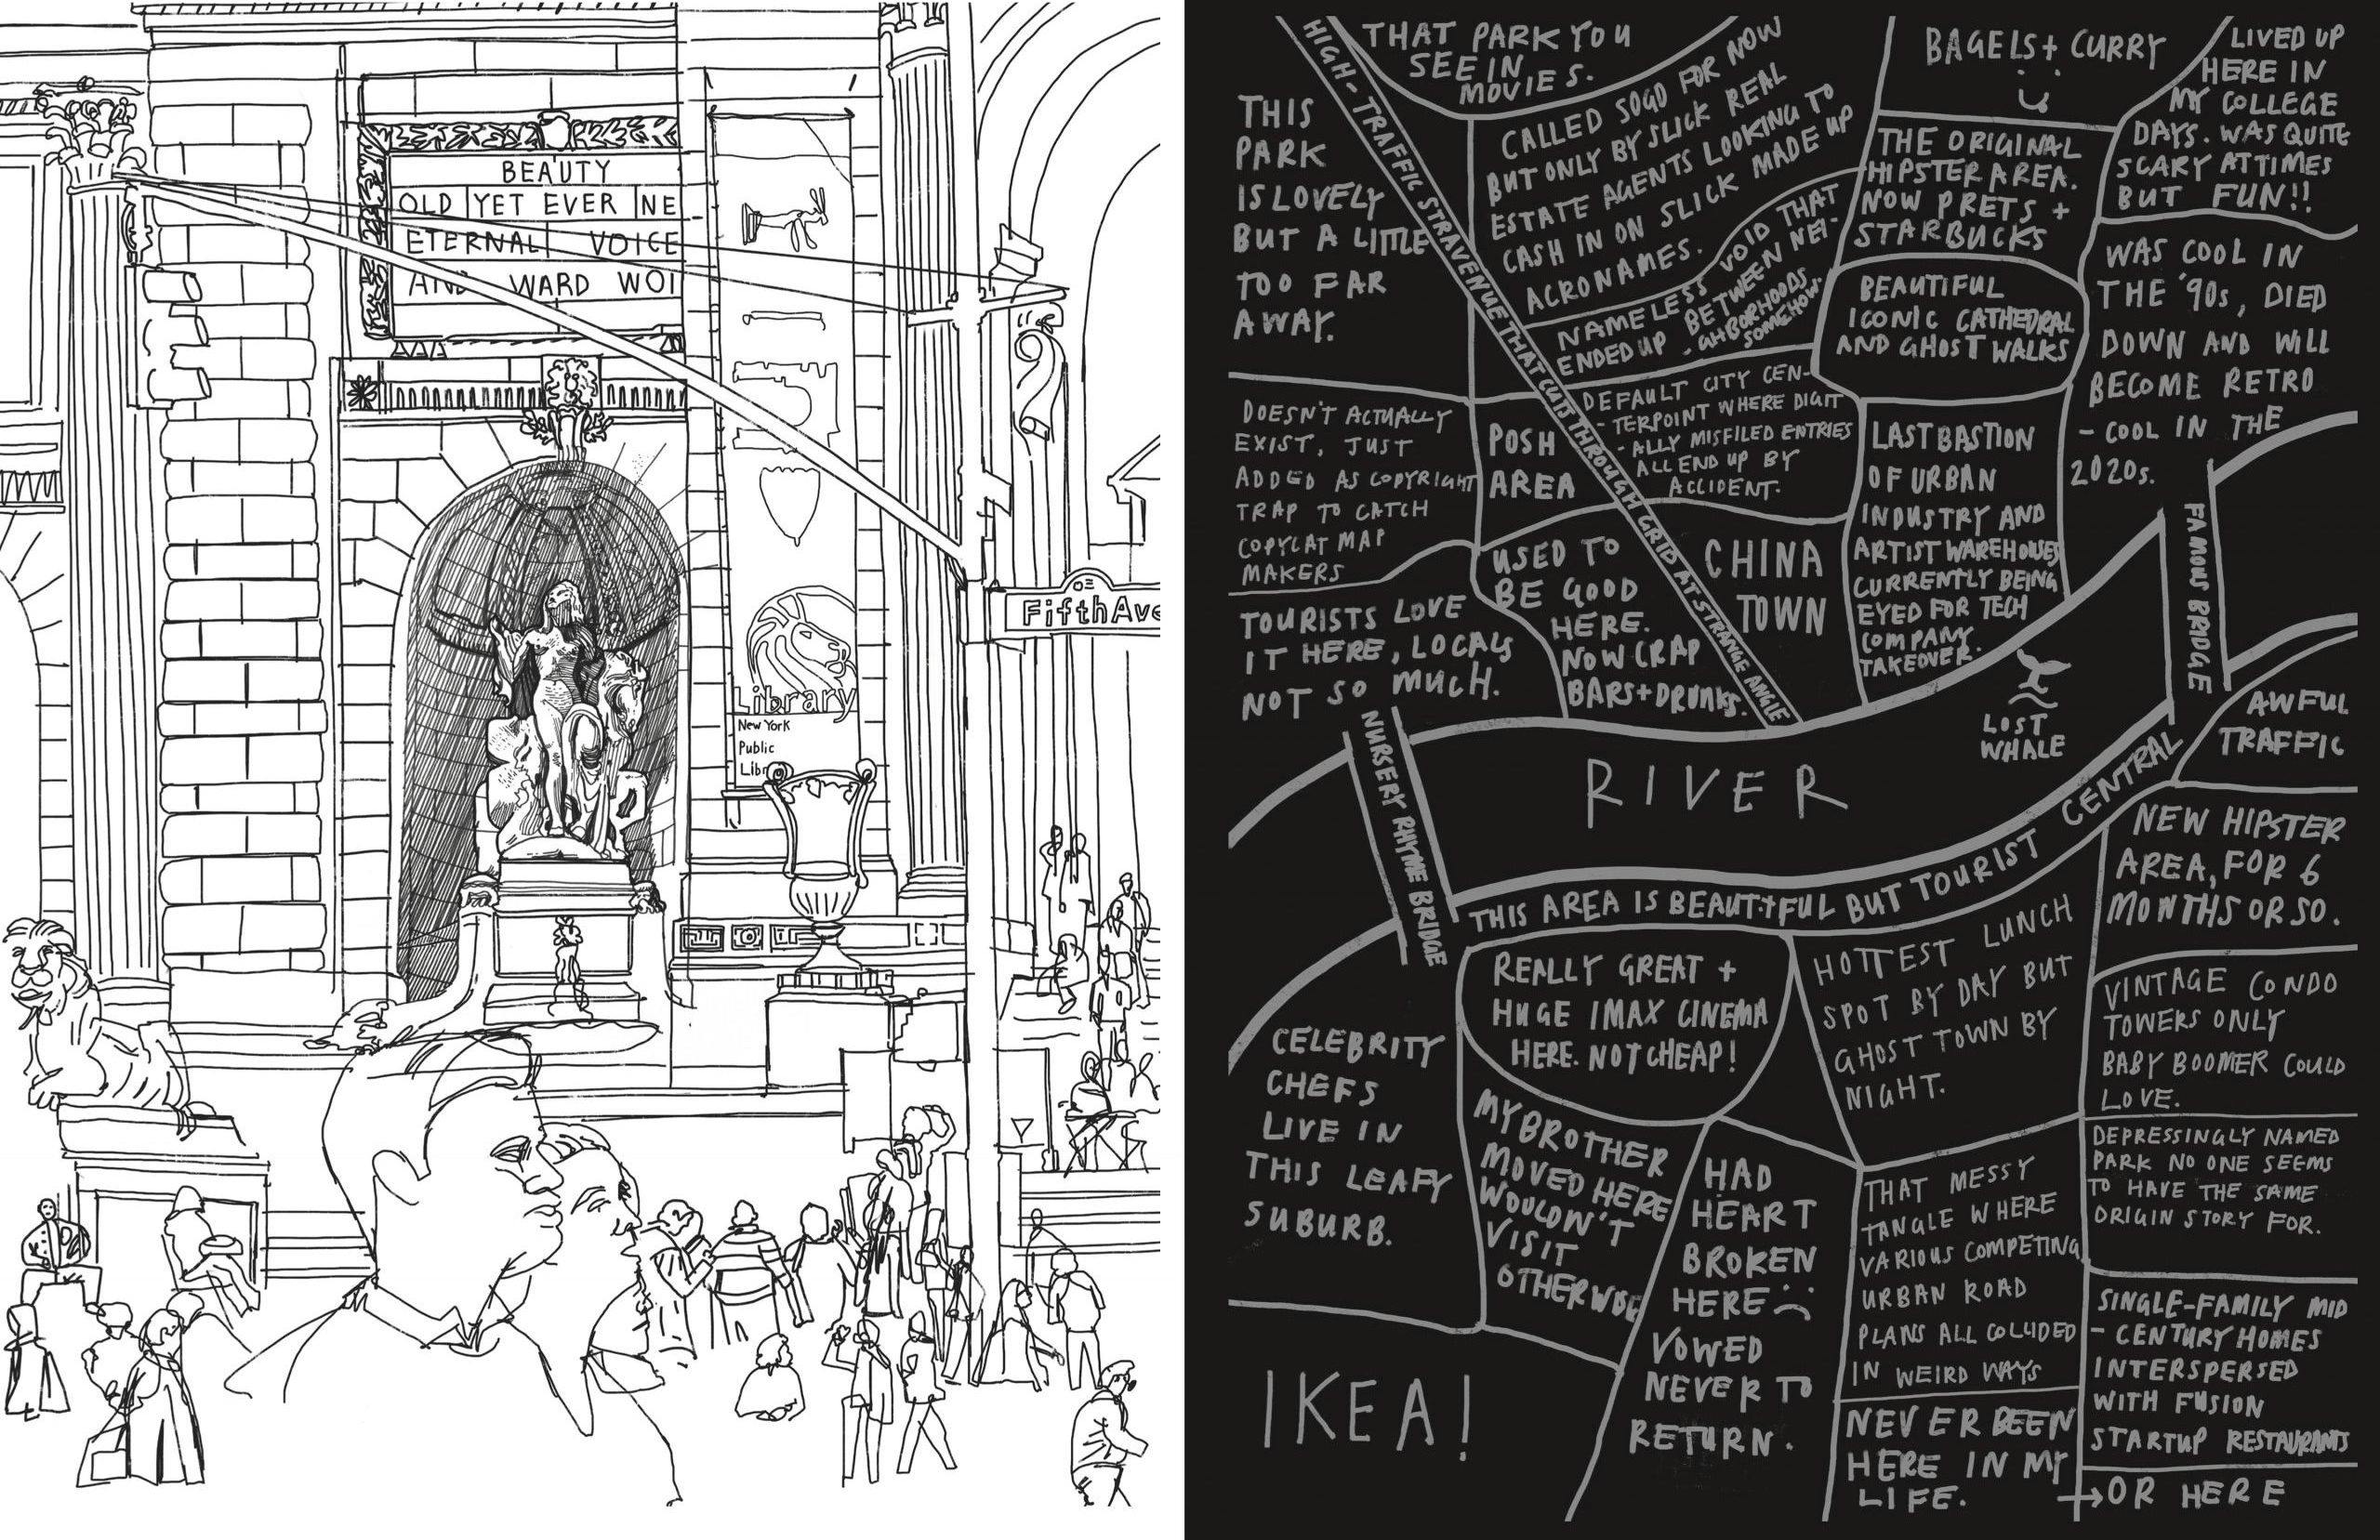 BEAUTY
OLD YET EVER NE
ETERNAL VOICE
AND WARD WOI
Fifth Ave
Library
New York
Public
Libr
THAT PARK YOU
SEE IN
MOVIES.
HIGH-TRAFFIC STRAVENUE THAT CUTS THROUGH GRID AT STRANGE ANGLE
THIS
PARK
IS LOVELY
BUT A LITTLE
TOO FAR
AWAY.
CALLED SOGO FOR NOW
BUT ONLY BY SLICK REAL
ESTATE AGENTS LOOKING TO
CASH IN ON SLICK MADE UP
ACRONAMES.
BAGELS + CURRY
LIVED UP
HERE IN
MY COLLEGE
DAYS. WAS QUITE
SCARY AT TIMES
BUT FUN!!
THE ORIGINAL
HIPSTER AREA.
NOW PRETS +
STARBUCKS
NAMELESS VOID THAT
ENDED UP BETWEEN NEI-
-GHBORHOODS
SOMEHOW.
BEAUTIFUL
ICONIC CATHEDRAL
AND GHOST WALKS
WAS COOL IN
THE '90s, DIED
DOWN AND WILL
BECOME RETRO
-COOL IN THE
2020s.
DOESN'T ACTUALLY
EXIST, JUST
ADDED AS COPYRIGHT
TRAP TO CATCH
COPYCAT MAP
MAKERS
POSH
AREA
DEFAULT CITY CEN-
-TERPOINT WHERE DIGIT
-ALLY MISFILED ENTRIES
ALL END UP BY
ACCIDENT.
LAST BASTION
OF URBAN
INDUSTRY AND
ARTIST WAREHOUSES
CURRENTLY BEING
EYED FOR TECH
COMPANY
TAKEOVER.
TOURISTS LOVE
IT HERE, LOCALS
NOT SO MUCH.
USED TO
BE GOOD
HERE.
NOW CRAP
BARS + DRUNKS.
CHINA
TOWN
FAMOUS BRIDGE
LOST
WHALE
AWFUL
TRAFFIC
NURSERY RHYME BRIDGE
RIVER
THIS AREA IS BEAUTIFUL BUT TOURIST CENTRAL
NEW HIPSTER
AREA, FOR 6
MONTHS OR SO.
CELEBRITY
CHEFS
LIVE IN
THIS LEAFY
SUBURB.
REALLY GREAT +
HUGE IMAX CINEMA
HERE. NOT CHEAP!
HOTTEST LUNCH
SPOT BY DAY BUT
GHOST TOWN BY
NIGHT.
VINTAGE CONDO
TOWERS ONLY
BABY BOOMER COULD
LOVE.
MY BROTHER
MOVED HERE
WOULDN'T
VISIT
OTHERWISE
HAD
HEART
BROKEN
HERE
VOWED
NEVER TO
RETURN.
THAT MESSY
TANGLE WHERE
VARIOUS COMPETING
URBAN ROAD
PLANS ALL COLLIDED
IN WEIRD WAYS
DEPRESSINGLY NAMED
PARK NO ONE SEEMS
TO HAVE THE SAME
ORIGIN STORY FOR.
SINGLE-FAMILY MID
-CENTURY HOMES
INTERSPERSED
WITH FUSION
STARTUP RESTAURANTS
IKEA!
NEVER BEEN
HERE IN MY
LIFE.
→OR HERE